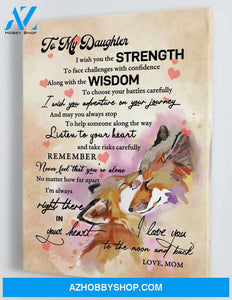 AZ
HOBBY SHOP
To My Daughter
I wish you the STRENGTH
To face challenges with confidence
Along with the WISDOM
To choose your battles carefully
I wish you adventure on your journey...
And may you always stop
To help someone along the way
Listen to your heart
and take risks carefully
REMEMBER
Never feel that you're alone
No matter how far apart
I'm always
right there
IN
your heart
I love you
to the moon and back
LOVE, MOM
AZHOBBYSHOP.COM